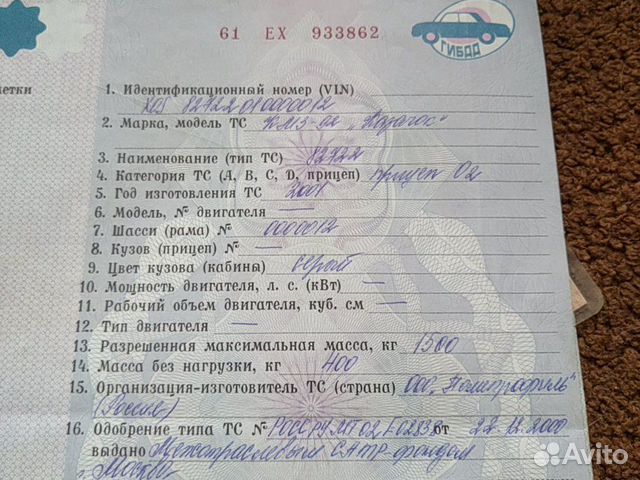 61 ЕХ 933862
ГИБДД
етки
1. Идентификационный номер (VIN)
Х05 8272201 0000012
2. Марка, модель ТС КМЗ-02
3. Наименование (тип ТС) 82722
4. Категория ТС (А, В, С, D, прицеп) прицеп О2
5. Год изготовления ТС 2001
6. Модель, № двигателя —
7. Шасси (рама) № 0000012
8. Кузов (прицеп) № —
9. Цвет кузова (кабины) серый
10. Мощность двигателя, л. с. (кВт) —
11. Рабочий объем двигателя, куб. см —
12. Тип двигателя —
13. Разрешенная максимальная масса, кг 1500
14. Масса без нагрузки, кг 400
15. Организация-изготовитель ТС (страна) ООО „Полипрофиль"
(Россия)
16. Одобрение типа ТС № РОСС RU.МТ02 от 22.12.2000
выдано Межотраслевым фондом
г. Москва
Avito